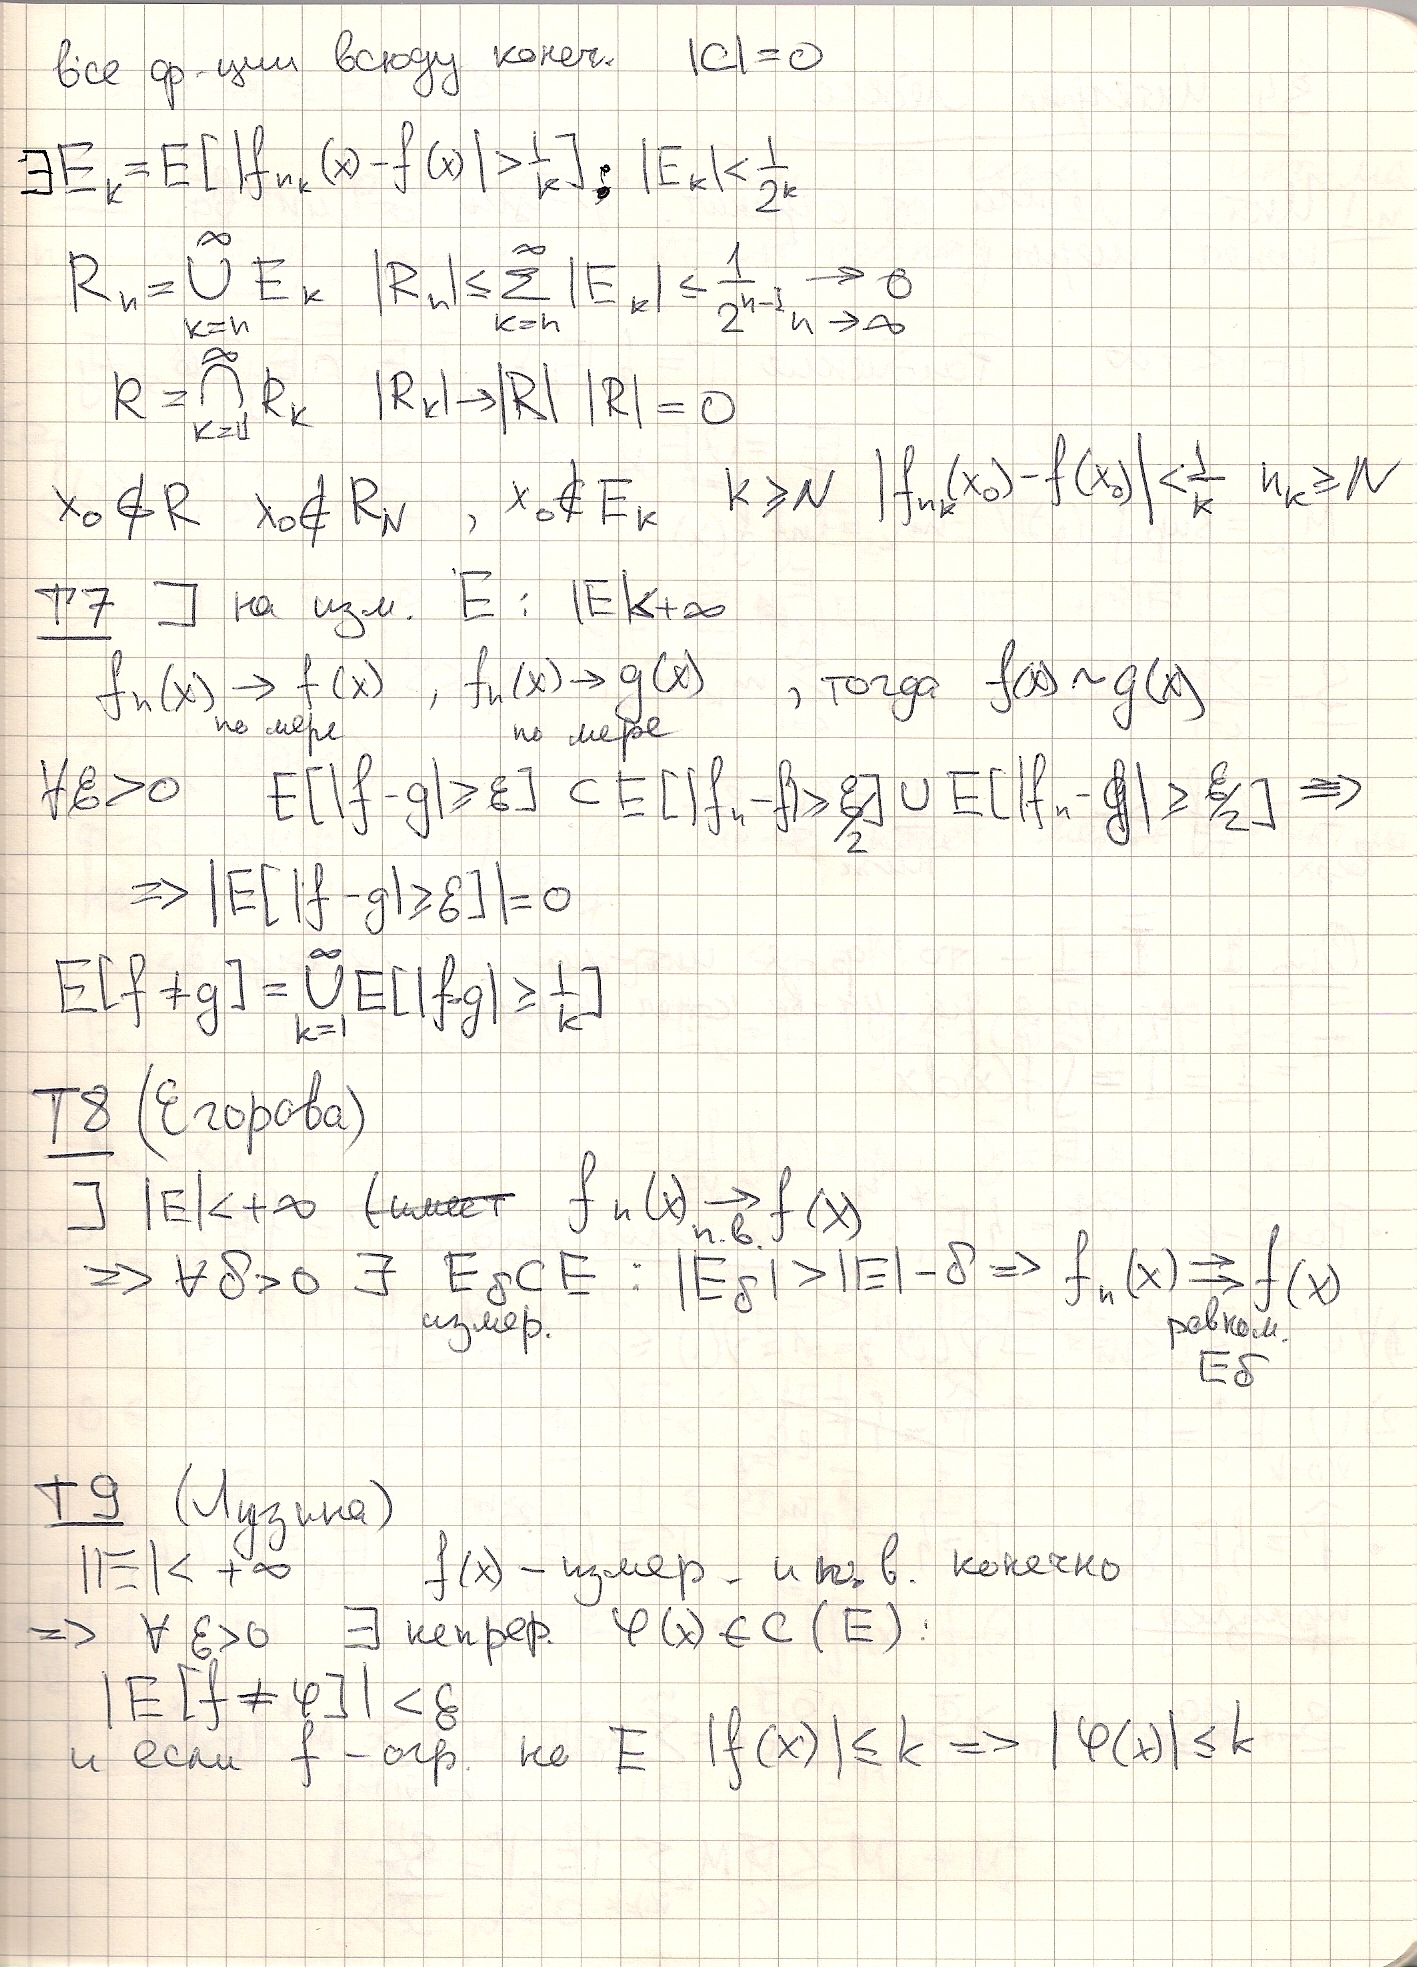 все ф-ции всюду конеч. |C|=0
∃E_k=E[|f_{n_k}(x)-f(x)|>1/k]; |E_k|<1/2^k
R_n=⋃_{k=n}^∞ E_k |R_n|≤∑_{k=n}^∞ |E_k|≤1/2^{n-1} → 0 n→∞
R=⋂_{k=1}^∞ R_k |R_k|→|R| |R|=0
x_0∉R x_0∉R_N, x_0∉E_k k≥N |f_{n_k}(x_0)-f(x_0)|<1/k n_k≥N
T7 ] на изм. E: |E|<+∞
f_n(x) → f(x), f_n(x)→g(x), тогда f(x)~g(x)
по мере по мере
∀ε>0 E[|f-g|≥ε] ⊂ E[|f_n-f|≥ε/2] ∪ E[|f_n-g|≥ε/2] ⇒
⇒ |E[|f-g|≥ε]|=0
E[f≠g]=⋃_{k=1}^∞ E[|f-g|≥1/k]
T8 (Егорова)
] |E|<+∞ (имеет f_n(x) → f(x)
п.в.
⇒ ∀δ>0 ∃ E_δ⊂E : |E_δ|>|E|-δ ⇒ f_n(x)⇉f(x)
измер. равном.
Eδ
T9 (Лузина)
||E|<+∞ f(x)-измер. и п.в. конечно
⇒ ∀ε>0 ∃ непрер. φ(x)∈C(E):
|E[f≠φ]|<ε
и если f-огр. на E |f(x)|≤k ⇒ |φ(x)|≤k